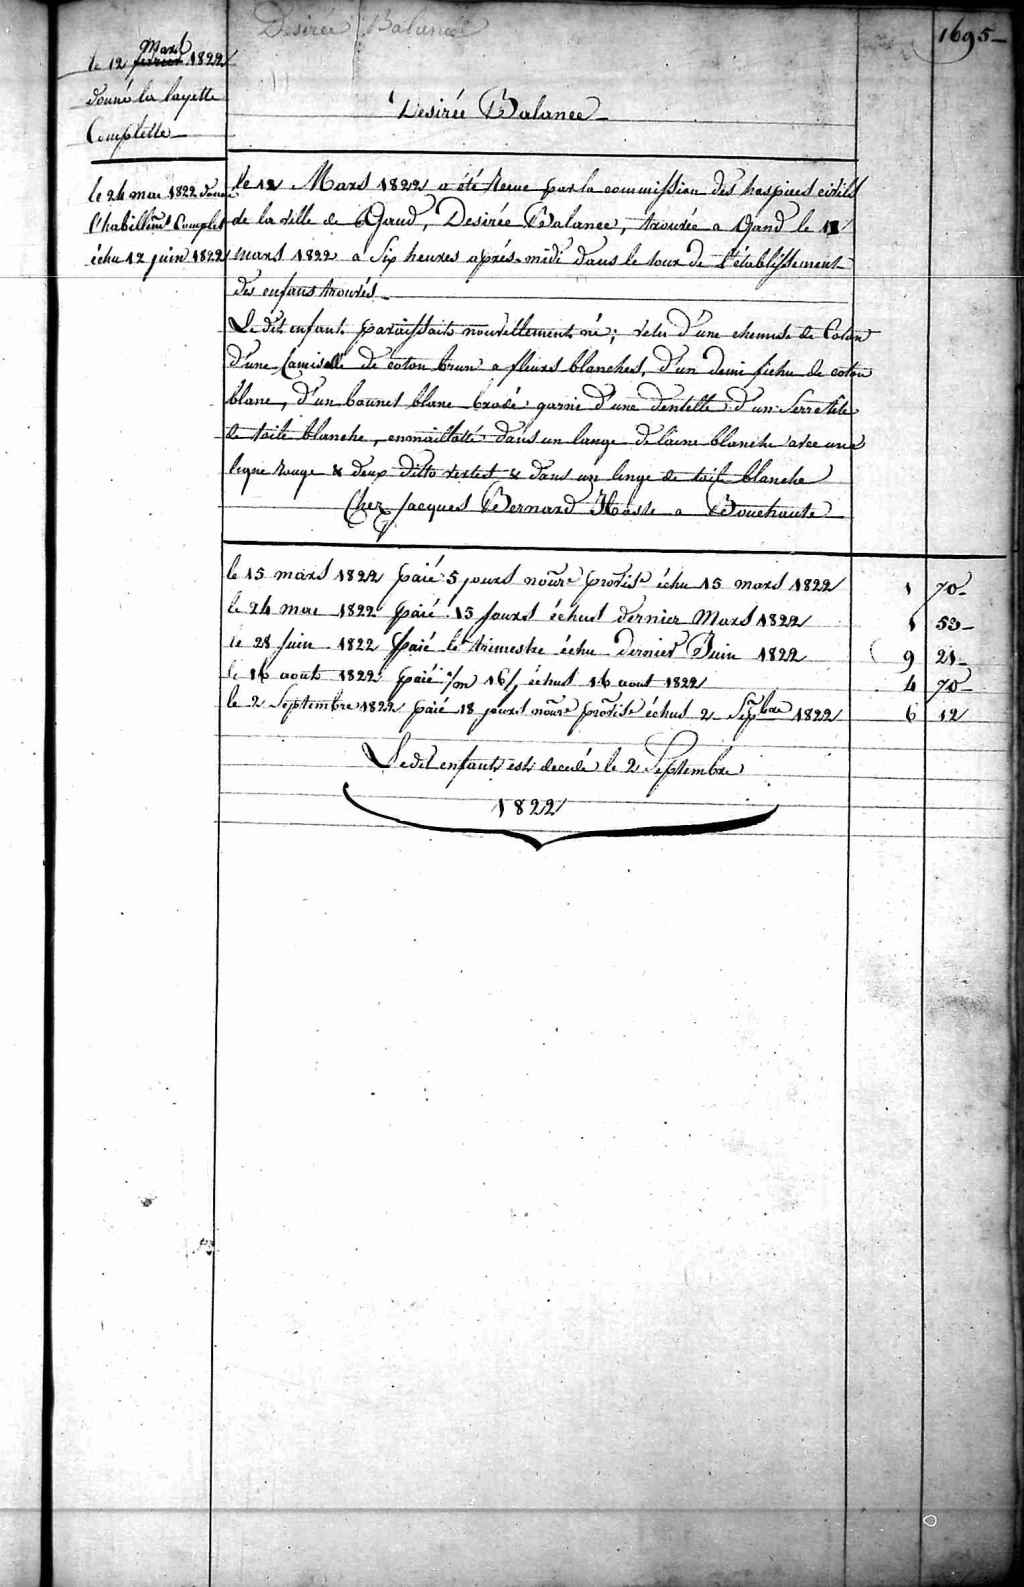 Desirée Balancée
1695
le 12 fevrier Mars 1822
donné la layette
Complette
Desirée Balancée
le 24 mai 1822 donné
l'habillemt Complet
échu 12 juin 1822
le 12 Mars 1822 a été Recue par la commission des hospices civils
de la ville de Gand, Desirée Balancée, trouvée a Gand le
mars 1822 a Six heures aprés midi dans le tour de l'établissement
des enfans trouvés
Le dit enfant paraissait nouvellement né; vetu d'une chemise de Coton
d'une Camisolle de coton brun a fleurs blanches, d'un demi fichu de coton
blanc, d'un bonnet blanc brodé garni d'une dentelle d'un Serretête
de toile blanche, enmaillotté dans un lange de laine blanche avec une
ligne Rouge & deux ditto vertes & dans un linge de toile blanche
Chez Jacques Bernard Hasse a Bouchaute
le 15 mars 1822 paié 5 jours nourre provise échu 15 mars 1822 1 70
le 24 mai 1822 paié 15 jours échus dernier Mars 1822 1 53
le 28 Juin 1822 paié le trimestre échu dernier Juin 1822 9 21
le 16 aout 1822 paié 16/ échus 16 aout 1822 4 70
le 2 Septembre 1822 paié 18 jours nourre provise échus 2 Sepbre 1822 6 12
Ledit enfant est decedé le 2 Septembre
1822